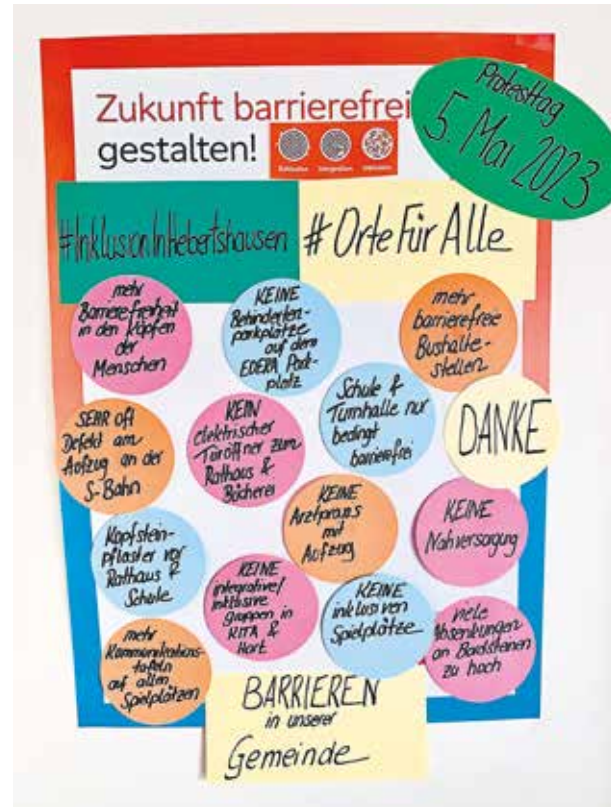 Zukunft barrierefrei
gestalten!
Exklusion Integration Inklusion
Protesttag
5. Mai 2023
#InklusionInHebertshausen
#OrteFürAlle
mehr
Barrierefreiheit
in den Köpfen
der
Menschen
KEINE
Behinderten-
parkplätze
auf dem
EDEKA Park-
platz
mehr
barrierefreie
Bushalte-
stellen
SEHR oft
Defekt am
Aufzug an der
S-Bahn
KEIN
elektrischer
Türöffner zum
Rathaus &
Bücherei
Schule &
Turnhalle nur
bedingt
barrierefrei
DANKE
Kopfstein-
pflaster vor
Rathaus &
Schule
KEINE
Arztpraxis
mit
Aufzug
KEINE
Nahversorgung
KEINE
integrative/
inklusive
gruppen in
KITA &
Hort
KEINE
inklusiven
Spielplätze
viele
Absenkungen
an Bordsteinen
zu hoch
mehr
Kommunikations-
tafeln
auf allen
Spielplätzen
BARRIEREN
in unserer
Gemeinde